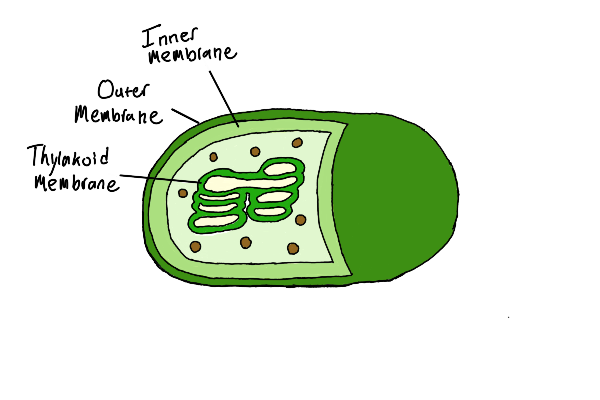 Inner
membrane
Outer
Membrane
Thylakoid
Membrane